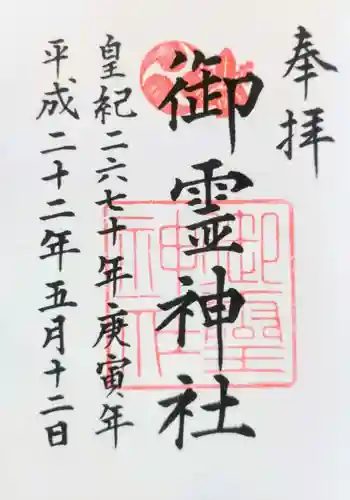 奉拝
御霊神社
皇紀二六七十年庚寅年
平成二十二年五月十二日
御霊神社